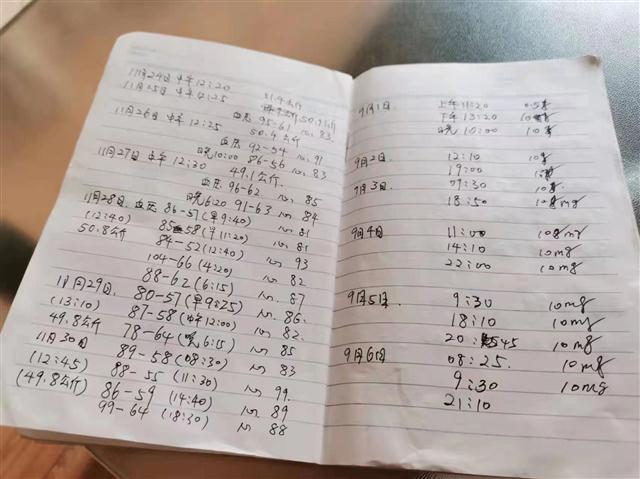 11月24日 中午12:20 51.4公斤
11月25日 中午12:25 50.9公斤
血压 95-61 no. 83
11月26日 中午12:25 50.4公斤
血压 92-54 no. 91
晚10:00 86-56 no. 83
11月27日 中午12:30 49.1公斤
血压 96-62 no. 85
晚6:20 91-63 no. 84
11月28日. 血压 86-57(早9:40) no. 81
(12:40) 85-58(早11:20) no. 81
50.8公斤 84-52(12:40) no. 93
104-66(4:20) no. 82
88-62(6:15) no. 87
11月29日. 80-57(早9:25) no. 86.
(13:10) 87-58(中午12:00) no. 82.
49.8公斤 78-64(晚6:15) no. 85
11月30日 89-58(08:30) no. 83
(12:45) 88-55(11:30) no. 99.
(49.8公斤) 86-59(14:40) no. 89
99-64(18:30) no 88
9月1日. 上午11:20
下午13:20
晚10:00
9月2日. 12:10
19:00
7月3日. 07:30
18:50 mg
9月4日 11:00 mg
14:10 10mg
22:00 10mg
9月5日. 9:30 10mg
18:10 10mg
20:45 10mg
9月6日 08:25. 10mg
9:30 10mg
21:10